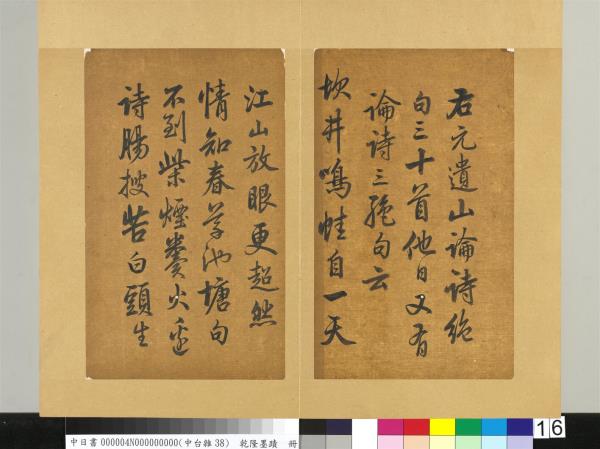 右元遺山論詩絶
句三十首他日又有
論詩三絶句云
坎井鳴蛙自一天
江山放眼更超然
情知春草池塘句
不到柴煙糞火邊
詩腸搜苦白頭生
中日書 000004N000000000(中台雜 38) 乾隆墨蹟 冊
16